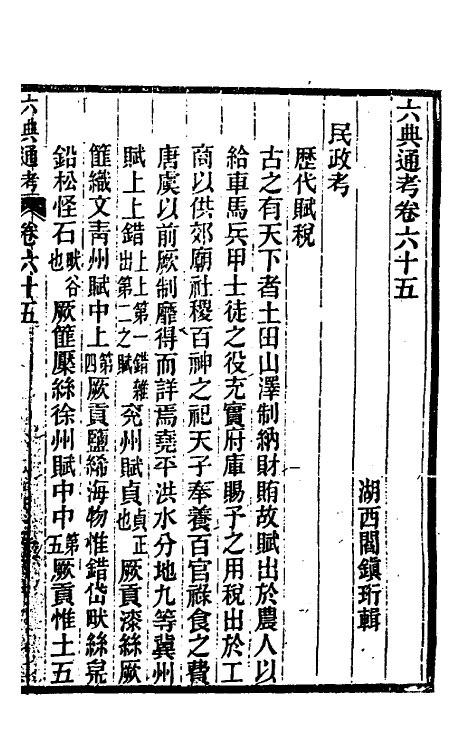 六典通考卷六十五
湖西閻鎮珩輯
民政考
歷代賦稅
古之有天下者土田山澤制納財賄故賦出於農人以
給車馬兵甲士徒之役充實府庫賜予之用稅出於工
商以供郊廟社稷百神之祀天子奉養百官祿食之費
唐虞以前厥制靡得而詳焉堯平洪水分地九等冀州
賦上上錯上上第一錯雜出第二之賦兖州賦貞貞正也厥貢漆絲厥
篚織文靑州賦中上第四厥貢鹽絺海物惟錯岱畎絲枲
鉛松怪石畎谷也厥篚檿絲徐州賦中中第五厥貢惟土五
六典通考
卷六十五